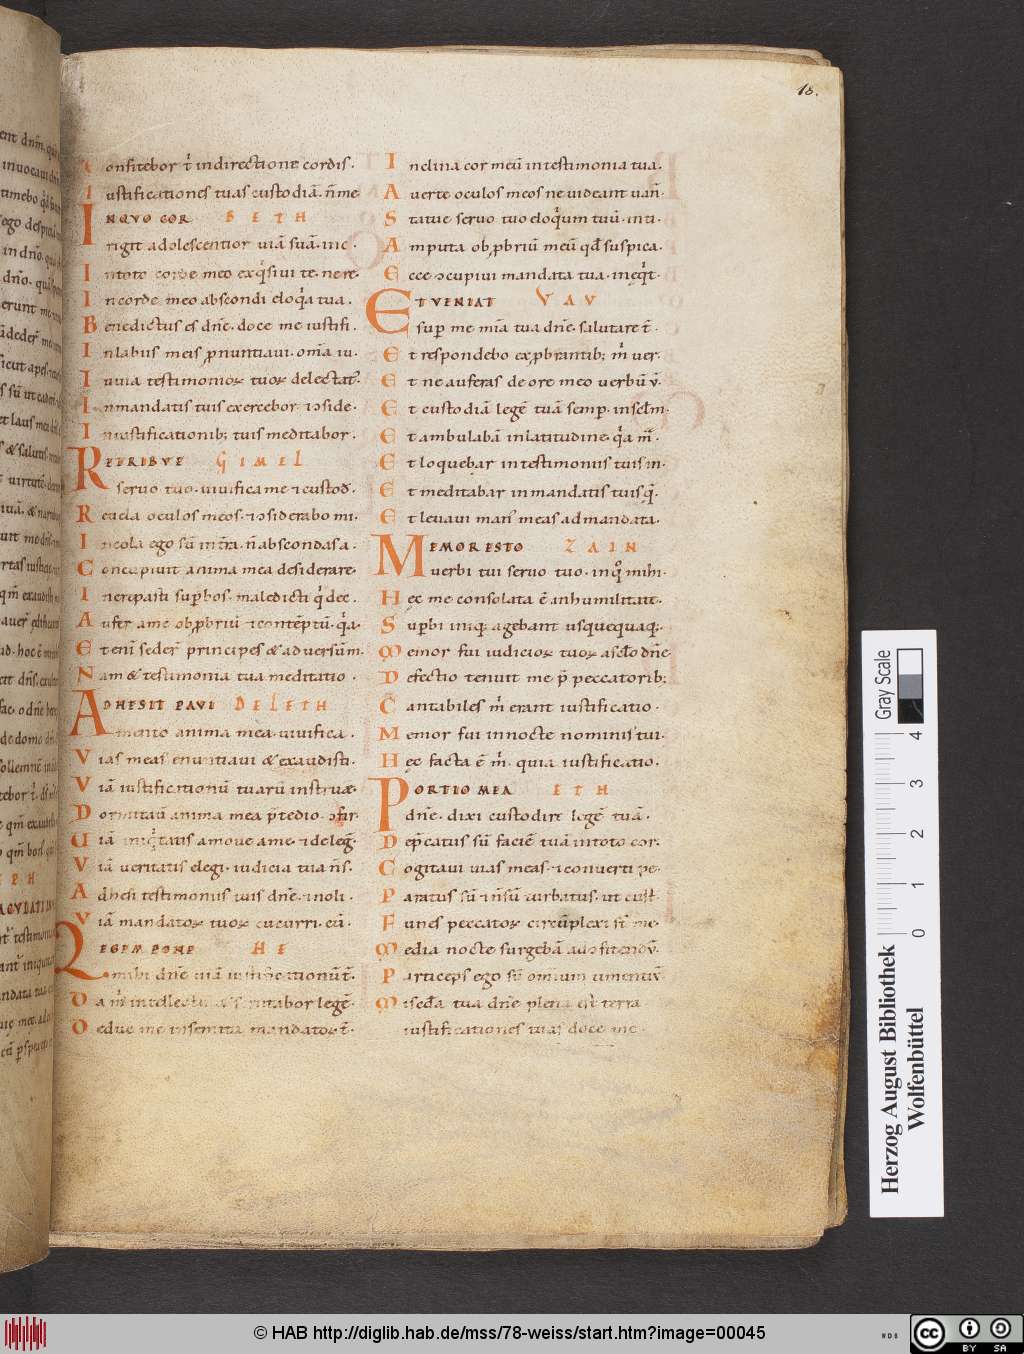 18.
Confitebor t̄ indirectione cordis.
Iustificationes tuas custodiā. ñ me
INQVO COR BETH
rigit adolescentior uiā suā. inc.
Intoto corde meo exq̇siui te. ne re
Incorde meo abscondi eloq̇a tua.
Benedictus es dn̄e. doce me iustifi.
Inlabiis meis ꝓnuntiaui. om̄a iu.
Inuia testimonioꝝ tuoꝝ delectat᷒.
Inmandatis tuis exercebor. ⁊ ɔside.
Iniustificationib; tuis meditabor.
RETRIBVE GIMEL
seruo tuo. uiuifica me ⁊ custod̄.
Reuela oculos meos. ⁊ ɔsiderabo mi.
Incola ego sū int̄ra. ñ abscondas a.
Concupiuit anima mea desiderare.
Increpasti sup̄bos. maledicti q̇ dec.
Aufer ame obꝓbriū ⁊ contēptū. q̇a.
Etenī seder̄ principes & aduersūm.
Nam & testimonia tua meditatio.
ADHESIT PAVI DELETH
mento anima mea. uiuifica.
Vias meas enuntiaui & exaudisti.
Viā iustificationū tuarū instruæ.
Dormitauit anima mea p̄ tedio. ɔfir
Uiā iniq̇tatis amoue ame. ⁊ deleḡ.
Viā ueritatis elegi. iudicia tua ñs.
Adhesi testimoniis tuis dn̄e. noli.
Viā mandatoꝝ tuoꝝ cucurri. cū.
LEGEM PONE HE
mihi dn̄e uiā iustificationū t̄.
Da m̄ intellectū & scrutabor legē.
Deduc me insemita mandatoꝝ t̄.
Inclina cor meū intestimonia tua.
Auerte oculos meos ne uideant uan̄.
Statue seruo tuo eloq̇um tuū. inti.
Amputa obꝓbriū meū qđ suspica.
Ecce ɔcupiui mandata tua. ineq̇t.
ET VENIAT VAV
sup̄ me mīa tua dn̄e. salutare t̄.
Et respondebo exꝓbrantib; m̄ uer.
Et ne auferas de ore meo uerbū ū̄.
Et custodiā legē tuā semp̄. insēlm.
Et ambulabā inlatitudine. q̇a m̄.
Et loquebar intestimoniis tuis in.
Et meditabar inmandatis tuis q̄.
Et leuaui man̄ meas admandata.
MEMOR ESTO ZAIN
uerbi tui seruo tuo. inq̊ mihi.
Hęc me consolata ē inhumilitate.
Sup̄bi iniq; agebant usquequaq;.
Memor fui iudicioꝝ tuoꝝ asēlo dn̄e
Defectio tenuit me p̄ peccatorib;
Cantabiles m̄ erant iustificatio.
Memor fui innocte nominis tui.
Hęc facta ē m̄. quia iustificatio.
PORTIO MEA ETH
dn̄e. dixi custodire legē tuā.
Dep̄catus sū faciē tuā intoto cor.
Cogitaui uias meas. ⁊ conuerti pe.
Paratus sū ⁊ nsū turbatus. ut cust̄.
Funes peccatoꝝ circūplexi st̄ me.
Media nocte surgebā adɔfitendū.
Particeps ego sū omnium timentiū
Misēđa tua dn̄e plena est terra
iustificationes tuas doce me.
Herzog August Bibliothek
Wolfenbüttel
Gray Scale
0 1 2 3 4
© HAB http://diglib.hab.de/mss/78-weiss/start.htm?image=00045
WDB
cc
BY SA